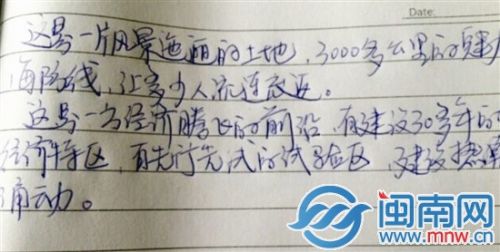 Date:
这是一片风景旖旎的土地，3000多公里的
海防线，让多少人流连放返。
这是一方经济腾飞的前沿，有建设30多年的
经济特区，有先行先试的试验区，建设
涌动。
闽南网
www.mnw.cn